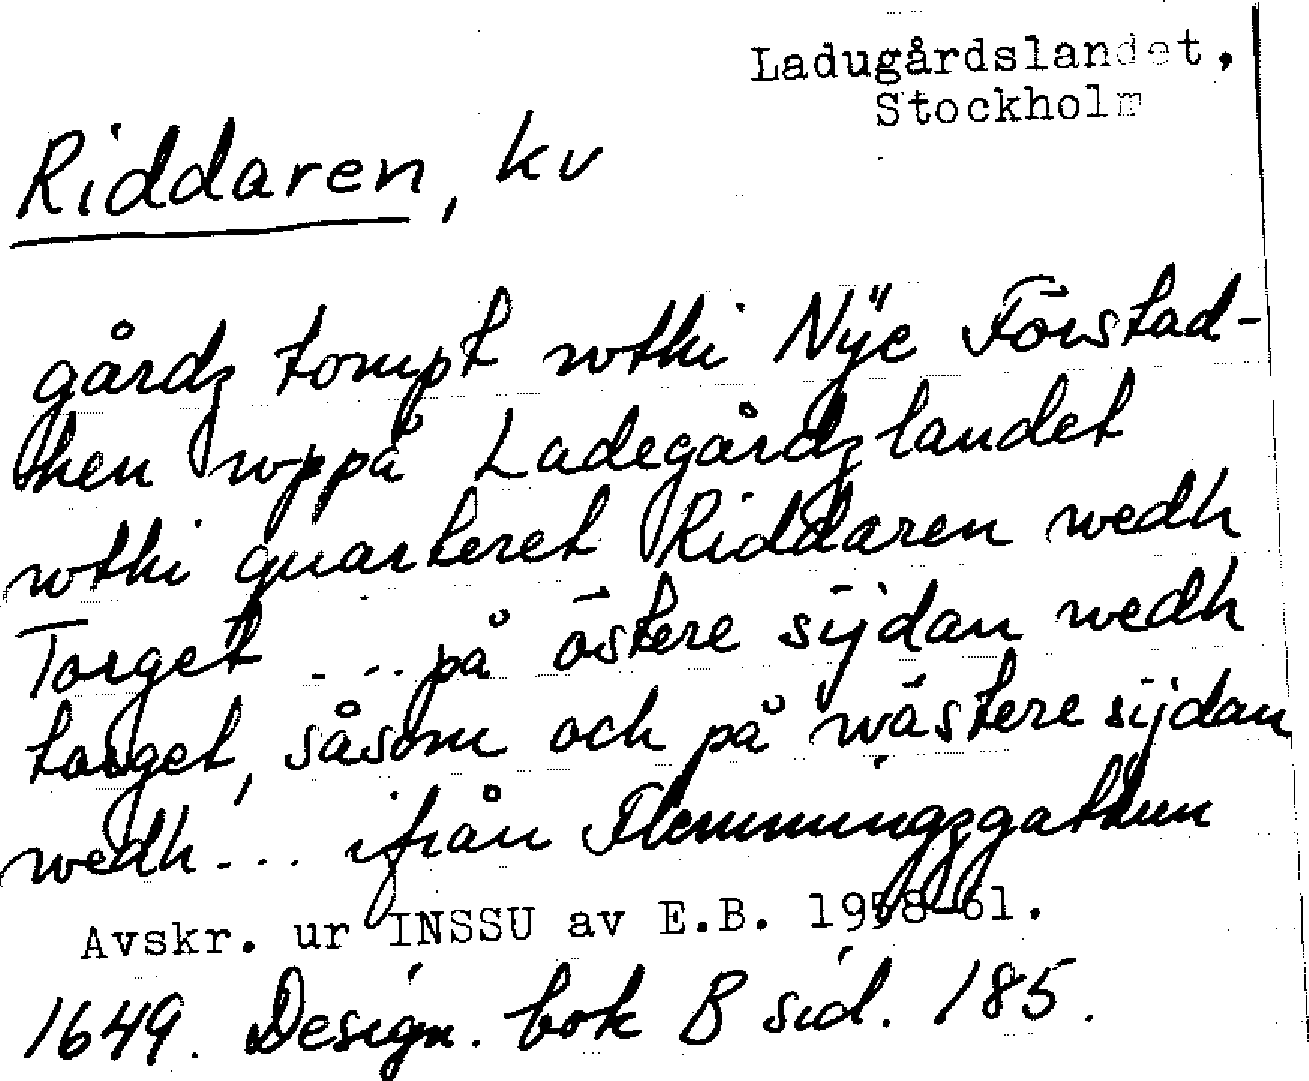 Ladugårdslandet,
Stockholm
Riddaren, kv
gårdz tompt wthi Nÿe Förstad-
hen wppå Ladegårdzlandet
wthi quarteret Riddaren wedh
Torget ... på östere sijdan wedh
torget, såsom och på wästere sijdan
wedh ... ifrån Flemmingzgathun
Avskr. ur INSSU av E.B. 1958-61.
1649. Design. bok B sid. 185.